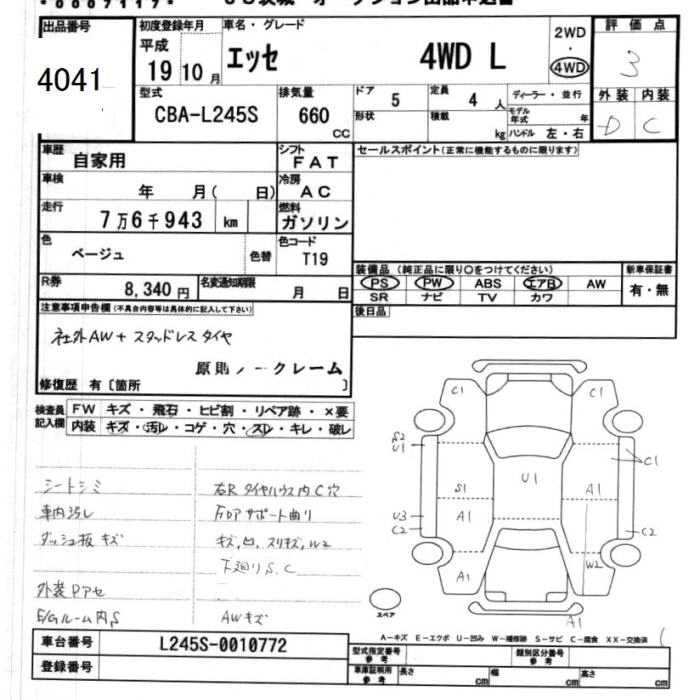 出品番号
4041
初度登録年月
平成
19 10月
車名・グレード
エッセ 4WD L
2WD
・
4WD
評価点
3
型式
CBA-L245S
排気量
660
CC
ドア
5
定員
4 人
ディーラー・並行
形状
積載
kg
モデル年式 年
ハンドル 左・右
外装 内装
D C
車歴
自家用
シフト
FAT
セールスポイント(正常に機能するものに限ります)
車検
年 月( 日)
冷房
AC
走行
7万6千943 km
燃料
ガソリン
色
ベージュ
色替
色コード
T19
R券
8,340円
名変通知期限
月 日
装備品(純正品に限り○をつけてください)
PS PW ABS エアB AW
SR ナビ TV カワ
新車保証書
有・無
後日品
注意事項申告欄(不具合内容等は具体的に記入して下さい)
社外AW+スタッドレスタイヤ
原則ノークレーム
修復歴 有〔箇所 〕
検査員記入欄
FW キズ・飛石・ヒビ割・リペア跡・×要
内装 キズ・汚レ・コゲ・穴・スレ・キレ・破レ
シートシミ
車内汚レ
ダッシュ板キズ
外装Pアセ
E/Gルーム内S
右RタイヤハウスC穴
FロアサポートH曲り
キズ,凹,スリキズ,W2
下廻りS.C
AWキズ
C1
C1
S2
U1
C1
U1
S1
A1
A1
U3
C2
C2
A1
W2
A1
スペア
A-キズ E-エクボ U-凹み W-補修跡 S-サビ C-腐食 XX-交換済
車台番号
L245S-0010772
登録番号
型式指定番号
参考
類別区分番号
参考
車庫証明用
参考
長さ cm
幅 cm
高さ cm